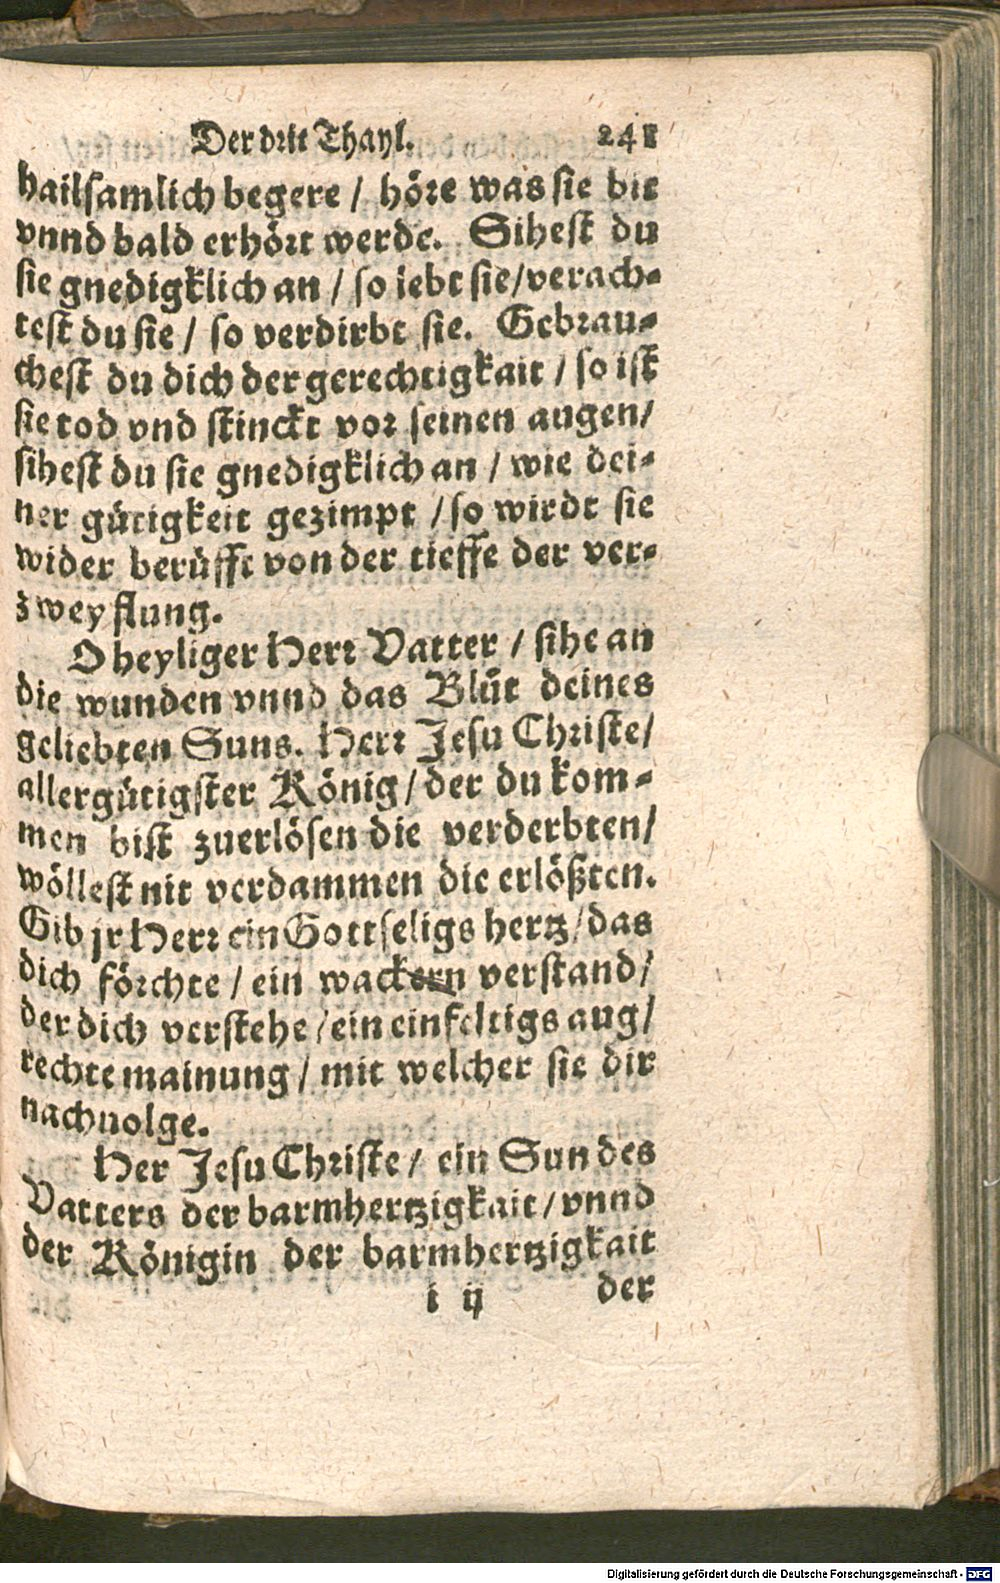 Der drit Thayl. 241
hailsamlich begere / höre was sie bit
vnnd bald erhört werde. Sihest du
sie gnedigklich an / so lebt sie / verach-
test du sie / so verdirbt sie. Gebrau-
chest du dich der gerechtigkait / so ist
sie tod vnd stinckt vor seinen augen /
sihest du sie gnedigklich an / wie dei-
ner gütigkeit gezimpt / so wirdt sie
wider berüfft von der tieffe der ver-
zweyflung.
O heyliger Herr Vatter / sihe an
die wunden vnnd das Blůt deines
geliebten Suns. Herr Jesu Christe /
allergütigster König / der du kom-
men bist zuerlösen die verderbten /
wöllest nit verdammen die erlößten.
Gib jr Herr ein Gottseligs hertz / das
dich förchte / ein wackern verstand /
der dich verstehe / ein einfeltigs aug /
rechte mainung / mit welcher sie dir
nachuolge.
Her Jesu Christe / ein Sun des
Vatters der barmhertzigkait / vnnd
der Königin der barmhertzigkait
i ij der
Digitalisierung gefördert durch die Deutsche Forschungsgemeinschaft - DFG